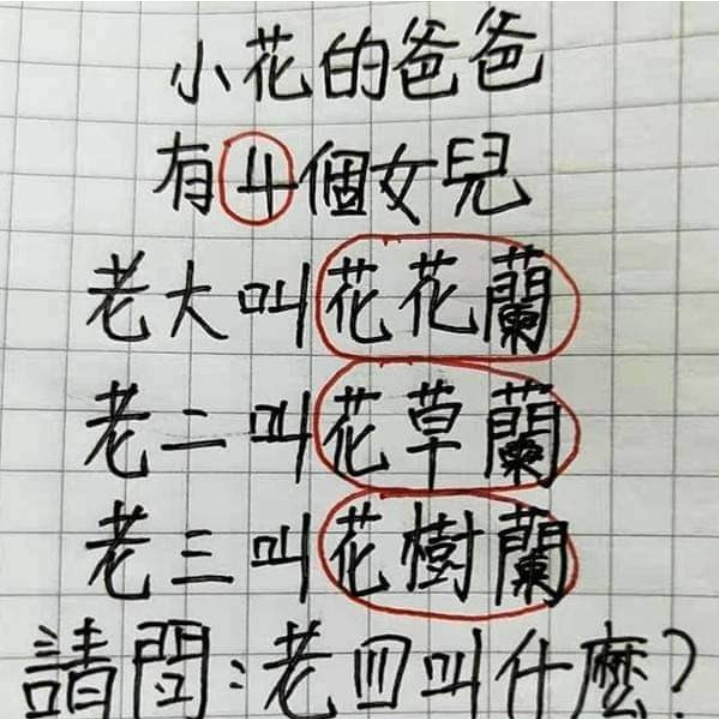 小花的爸爸
有4個女兒
老大叫花花蘭
老二叫花草蘭
老三叫花樹蘭
請問:老四叫什麼?